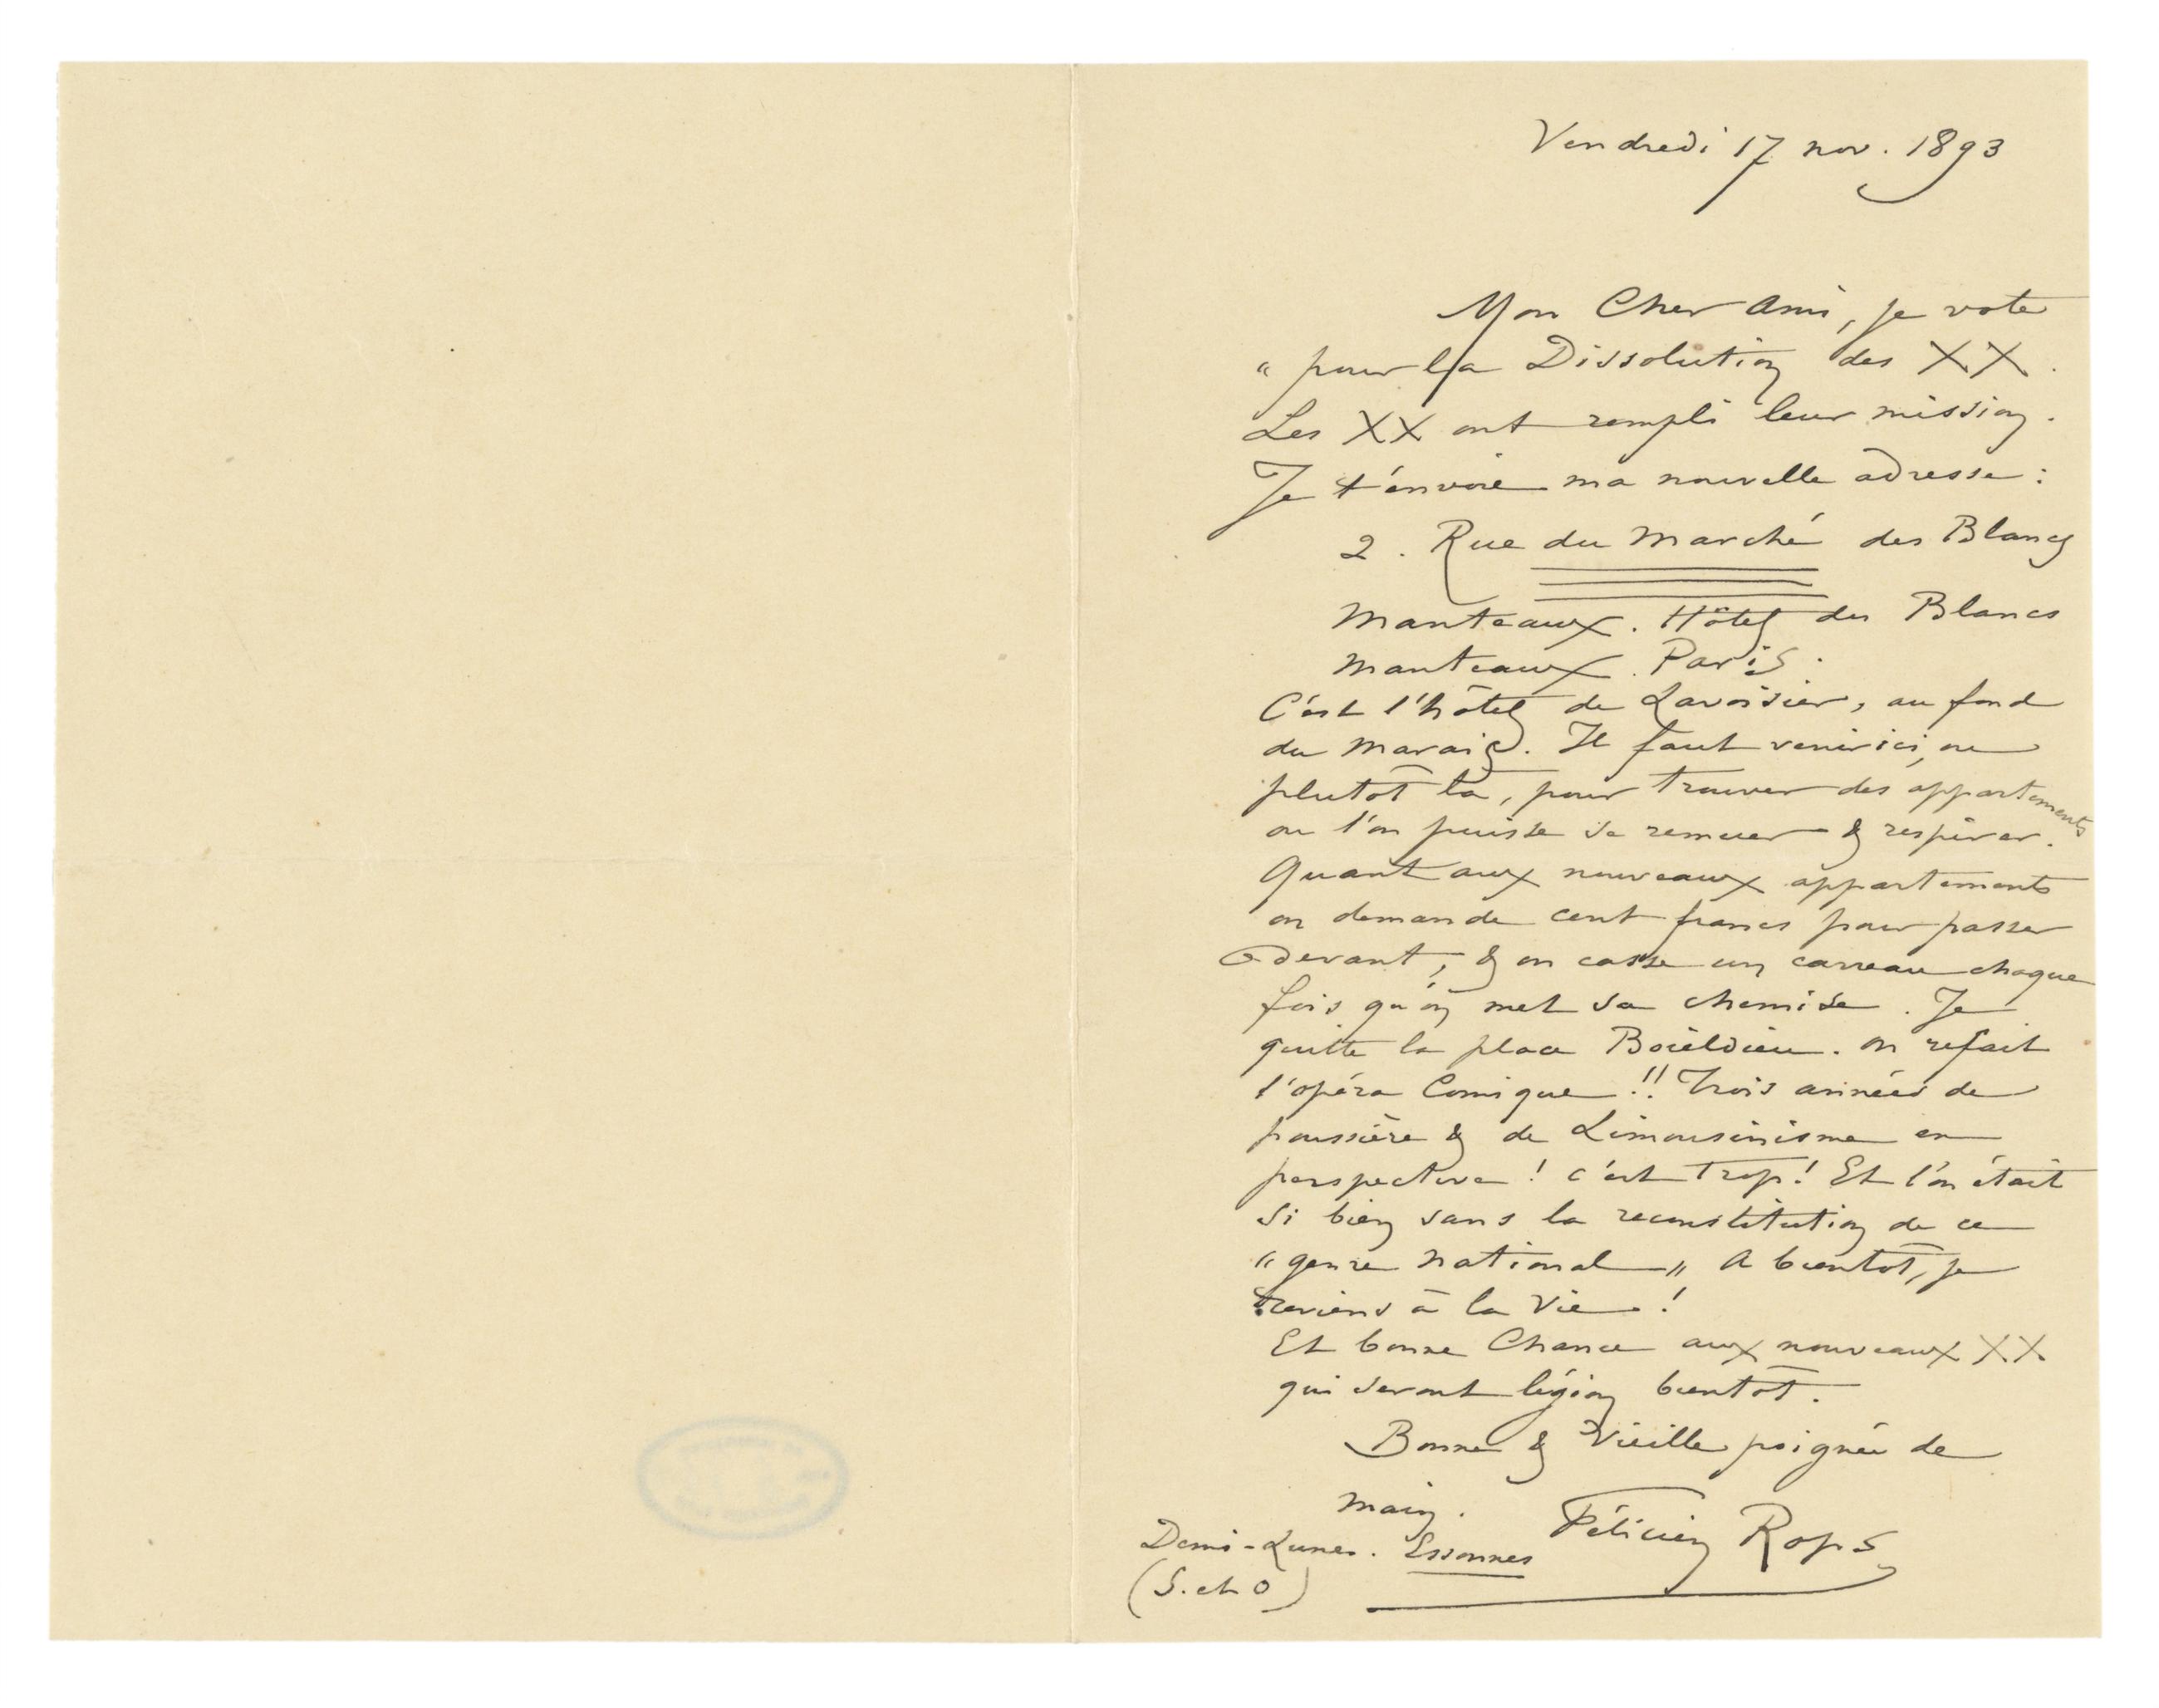 Vendredi 17 nov. 1893
Mon Cher Ami, je vote
" pour la Dissolution des XX.
Les XX ont rempli leur mission.
Je t'envoie ma nouvelle adresse :
2. Rue du Marché des Blancs
Manteaux. Hôtel des Blancs
Manteaux. Paris.
C'est l'hôtel de Lavoisier, au fond
du Marais. Il faut venir ici, ou
plutôt là, pour trouver des appartements
ou l'on puisse se remuer & respirer.
Quant aux nouveaux appartements
on demande cent francs pour passer
devant, & on casse un carreau chaque
fois qu'on met sa chemise. Je
quitte la place Boïeldieu. On refait
l'opéra Comique !! Trois années de
poussière & de Limousinisme en
perspective ! c'est trop ! Et l'on était
si bien sans la reconstitution de ce
" genre national " A bientôt, je
reviens à la Vie !
Et bonne Chance aux nouveaux XX
qui seront légion bientôt.
Bonne & Vieille poignée de
main. Félicien Rops
Demi-Lune. Essonnes
(S. et O)